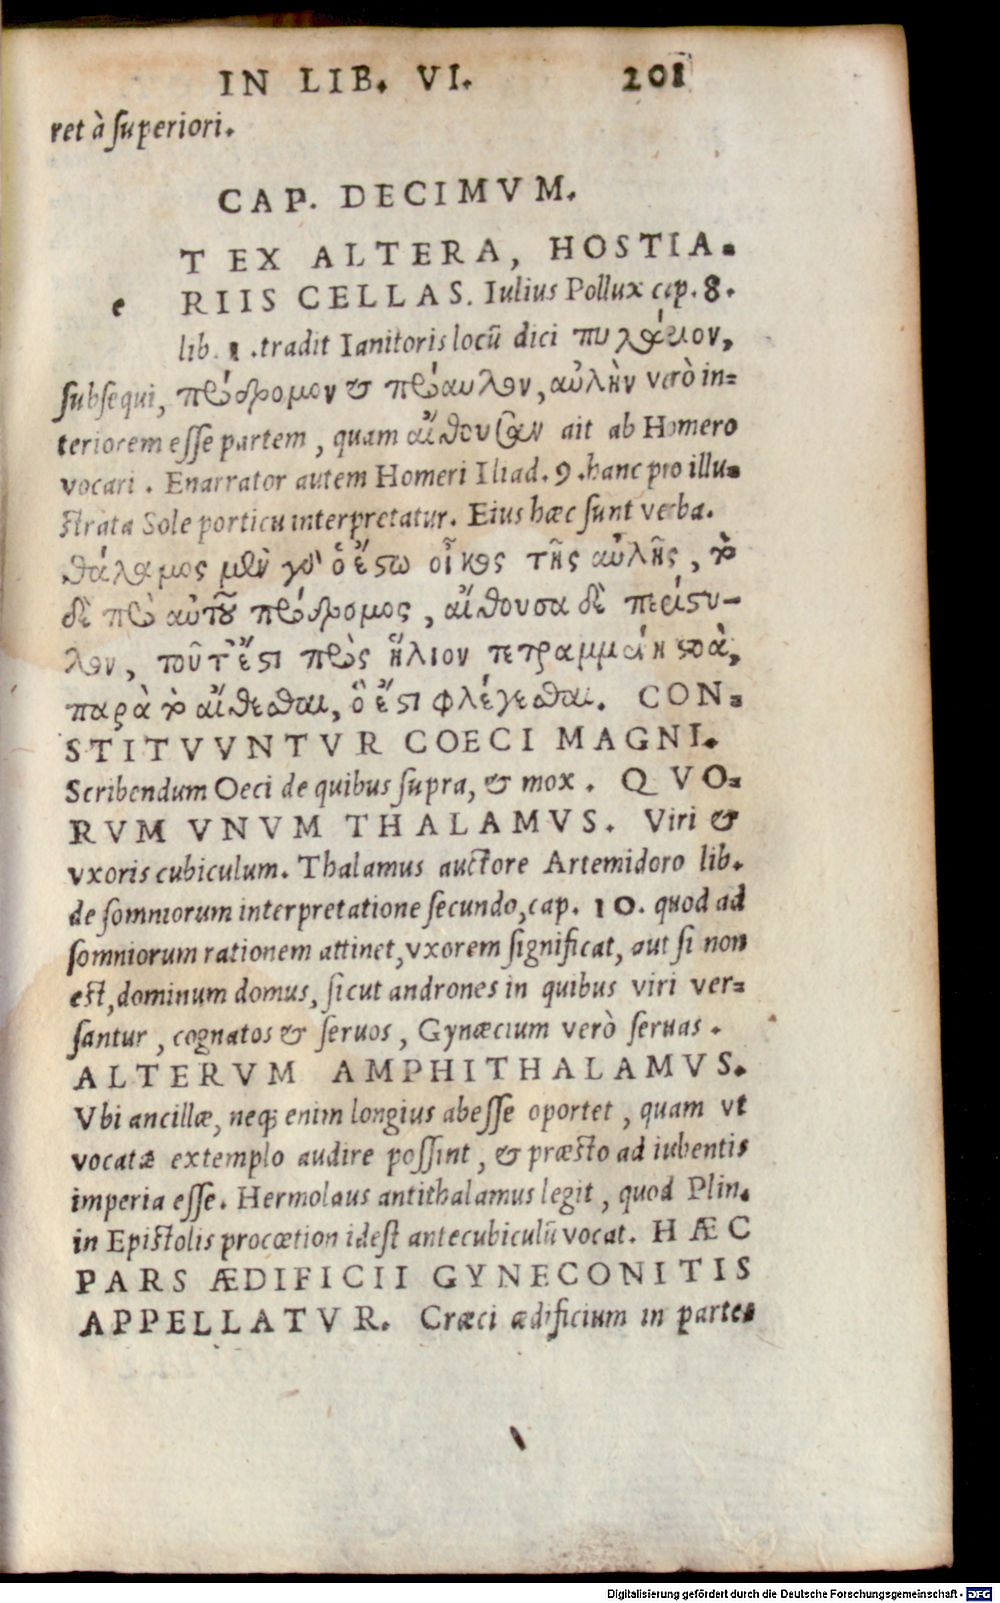 IN LIB. VI. 201
ret à superiori.
CAP. DECIMVM.
T EX ALTERA, HOSTIA-
e RIIS CELLAS. Iulius Pollux cap. 8.
lib. 1. tradit Ianitoris locū dici πυλώιον,
subsequi, πρόδρομον & πρόαυλον, αὐλὴν verò in-
teriorem esse partem, quam αἴθουσαν ait ab Homero
vocari. Enarrator autem Homeri Iliad. 9. hanc pro illu-
strata Sole porticu interpretatur. Eius hæc sunt verba.
θάλαμος μὲν γὸ ὁ ἔσω οἶκος τῆς αὐλῆς, τὸ
δὲ πρὸ αὐτοῦ πρόδρομος, αἴθουσα δὲ περίστυ-
λον, τοῦτ' ἔστι πρὸς ἥλιον τετραμμένη στοὰ,
παρὰ τὸ αἴθεσθαι, ὅ ἔστι φλέγεσθαι. CON-
STITVVNTVR COECI MAGNI.
Scribendum Oeci de quibus supra, & mox. QVO-
RVM VNVM THALAMVS. Viri &
vxoris cubiculum. Thalamus auctore Artemidoro lib.
de somniorum interpretatione secundo, cap. 10. quod ad
somniorum rationem attinet, vxorem significat, aut si non
est, dominum domus, sicut andrones in quibus viri ver-
santur, cognatos & seruos, Gynæcium verò seruas.
ALTERVM AMPHITHALAMVS.
Vbi ancillæ, neq; enim longius abesse oportet, quam vt
vocatæ extemplo audire possint, & præsto ad iubentis
imperia esse. Hermolaus antithalamus legit, quod Plin.
in Epistolis procœtion idest antecubiculū vocat. HÆC
PARS ÆDIFICII GYNECONITIS
APPELLATVR. Cræci ædificium in partes
Digitalisierung gefördert durch die Deutsche Forschungsgemeinschaft - DFG